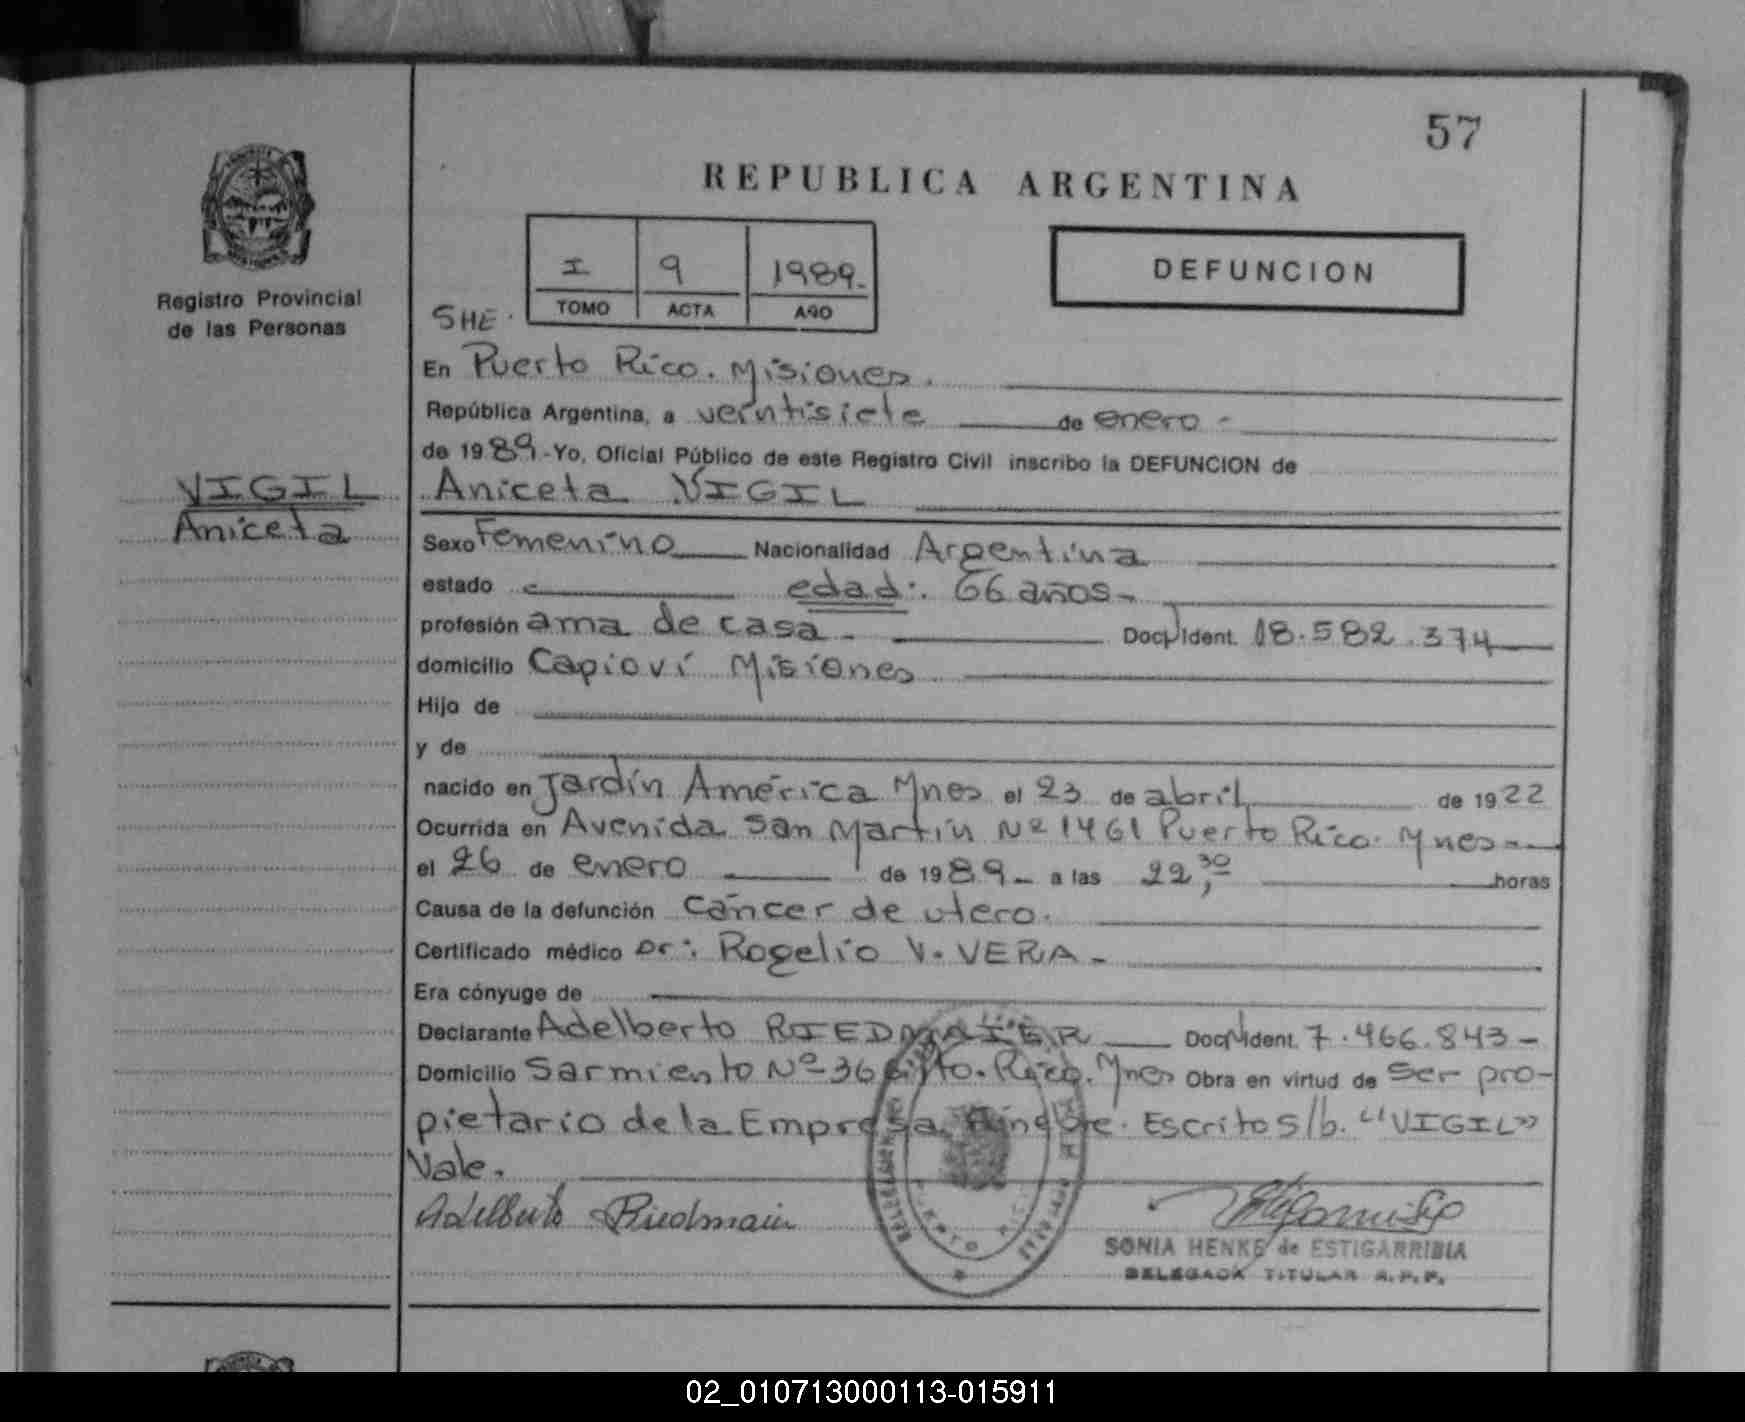 57
REPUBLICA ARGENTINA
Registro Provincial
de las Personas
I 9 1989.-
TOMO ACTA AÑO
DEFUNCION
SHE.
En Puerto Rico. Misiones.
República Argentina, a veintisiete de enero -
de 1989-Yo, Oficial Público de este Registro Civil inscribo la DEFUNCION de
VIGIL
Aniceta
Aniceta VIGIL
Sexo Femenino Nacionalidad Argentina
estado edad: 66 años-
profesión ama de casa - Doc. Ident. 18.582.374
domicilio Capioví Misiones
Hijo de
y de
nacido en Jardín América Mnes el 23 de abril de 1922
Ocurrida en Avenida San Martín Nº 1461 Puerto Rico. Mnes-
el 26 de enero de 1989- a las 22,30 horas
Causa de la defunción Cáncer de utero.
Certificado médico Dr: Rogelio V. VERA-
Era cónyuge de
Declarante Adelberto RIEDMAIER Doc. Ident. 7.466.843-
Domicilio Sarmiento Nº 36 Pto. Rico. Mnes Obra en virtud de ser pro-
pietario de la Empresa Fúnebre. Escrito s/b. "VIGIL"
Vale.
Adelberto Riedmaier
SONIA HENKE de ESTIGARRIBIA
DELEGADA TITULAR R.P.P.
02_010713000113-015911